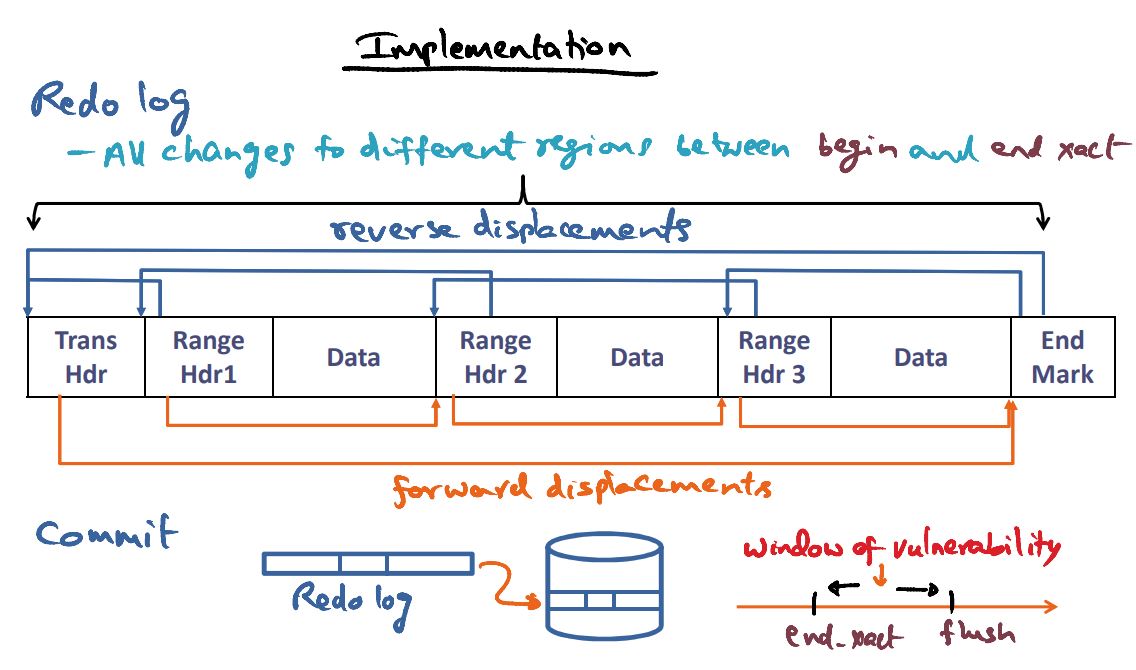 Implementation
Redo log
- All changes to different regions between begin and end xact
reverse displacements
Trans Hdr
Range Hdr1
Data
Range Hdr 2
Data
Range Hdr 3
Data
End Mark
forward displacements
Commit
Redo log
window of vulnerability
end_xact
flush